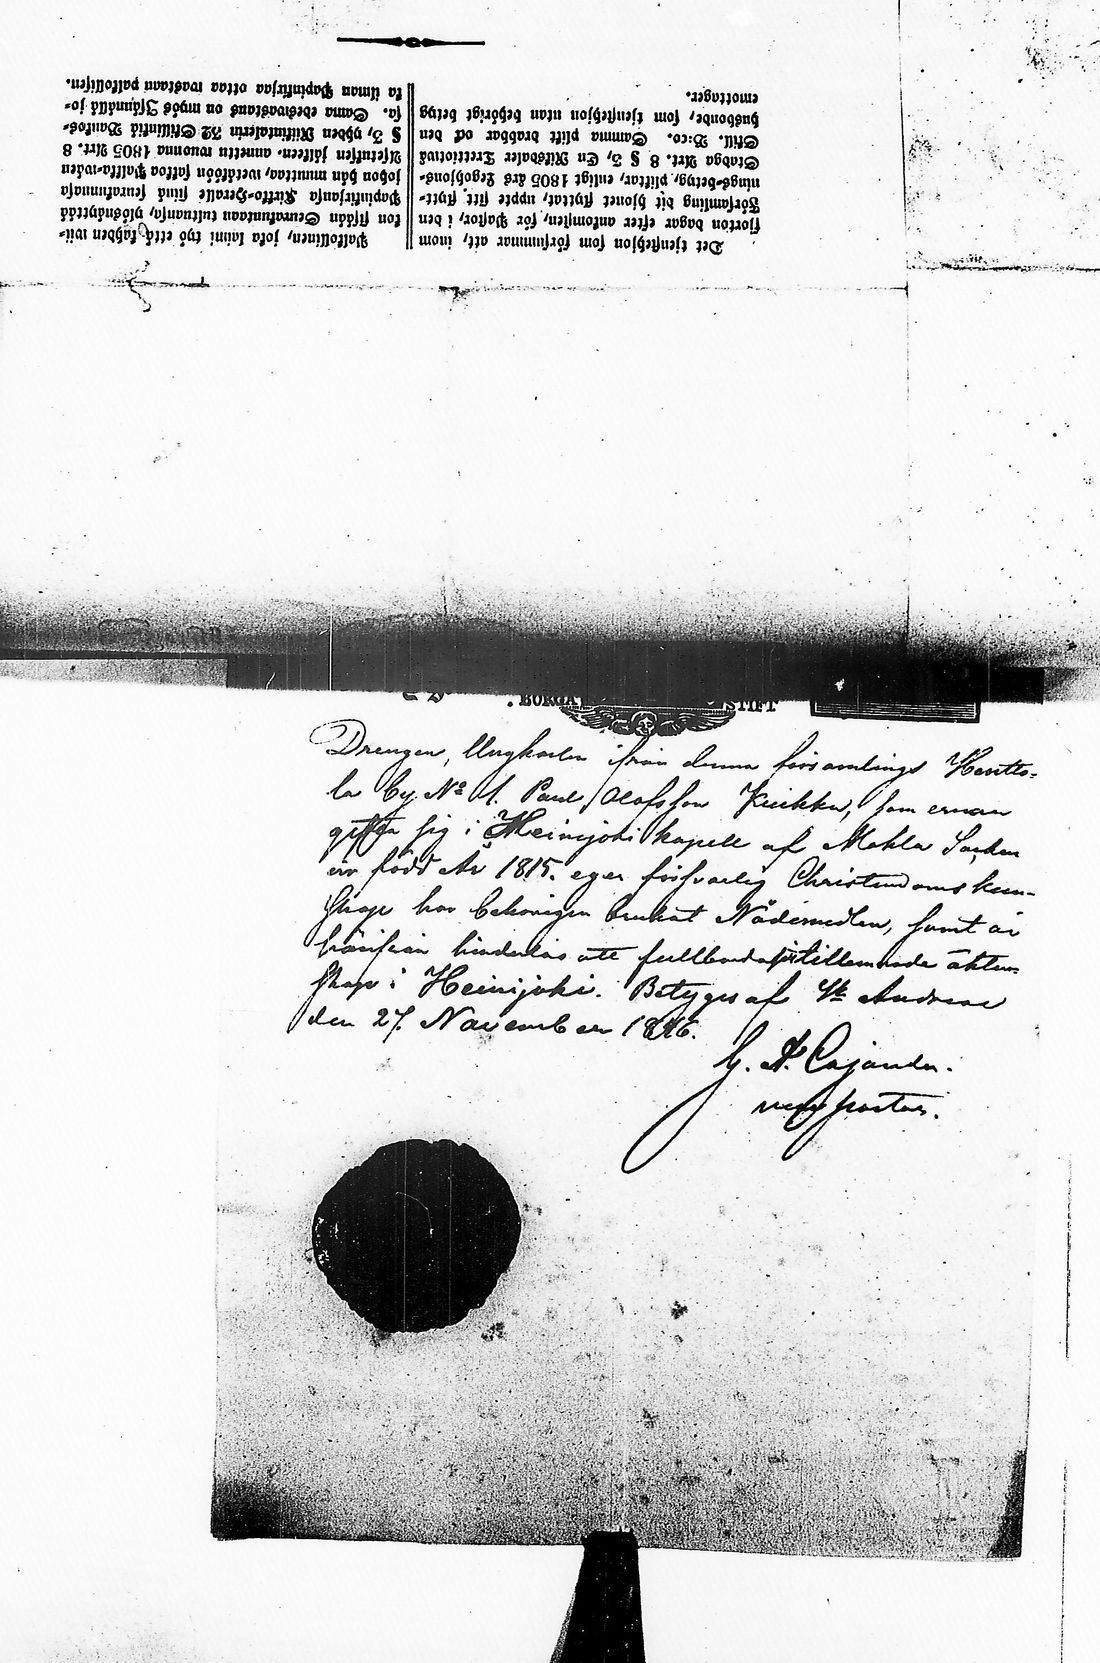 Det tjensteh​jon som försummar att, inom
fjorton dagar efter ankomsten, för Pastor, i den
Församling dit hjonet flyttat, uppte sitt flytt-
nings-betyg, pliktar, enligt 1805 års Legohjons-
Stadga Art. 8 § 3, En Riksdaler Trettiotwå
Skill. B:co. Samma plikt drabbar ock den
husbonde, som tjenstehjon utan behörigt betyg
emottager.
Palkollinen, joka laimi lyö että kahden wii-
kon sisään Seurakuntaan tultuansa, ylösnäyttää
Papinkirjansa Kirkko-Herralle siinä seurakunnasa
johon hän muuttaa, wetdköön sakkoa Palkka-wäden
Asetuksen jälkeen, annettu wuonna 1805 Art. 8
§ 3, yhden Riikintalerin 32 Skillinkiä Bankos-
sa. Sama edeswastaus on myös Isännällä jo-
ka ilman Papinkirjaa ottaa wastaan palkollisen.
BORGÅ STIFT
Drengen, Ungkarlen ifrån denna församlings Kentto-
la by No 1. Paul Olafsson Kuikka, som ernar
gifta sig i Heinijoki kapell af Mohla Socken
är född År 1815. eger försvarlig Christendoms kun-
skap har behörigen brukat Nådemedlen, samt är
härifrån hinderlös att fullborda sitt tillernade äkten-
skap i Heinijoki. Betygas af St Andreae
den 27. November 1846.
G. A. Cajander.
vice pastor.